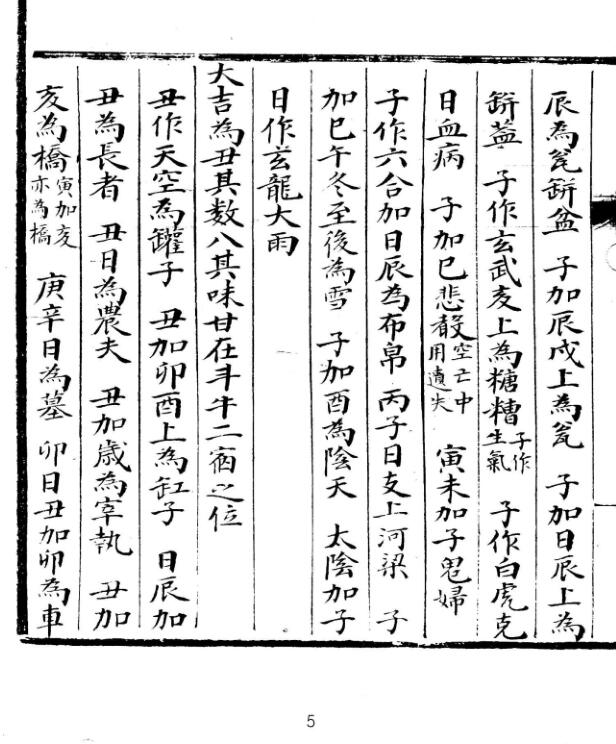 辰為瓮缾盆　子加辰戌上為瓮　子加日辰上為
缾盖　子作玄武亥上為糖糟子作生氣　子作白虎克
日血病　子加巳悲聲空亡中用遺失　寅未加子鬼婦
子作六合加日辰為布帛　丙子日支上河梁　子
加巳午冬至後為雪　子加酉為陰天　太陰加子
日作玄龍大雨
大吉為丑其数八其味甘在斗牛二宿之位
丑作天空為罐子　丑加卯酉上為缸子　日辰加
丑為長者　丑日為農夫　丑加歳為宰執　丑加
亥為橋寅加亥亦為橋　庚辛日為墓　卯日丑加卯為車
5